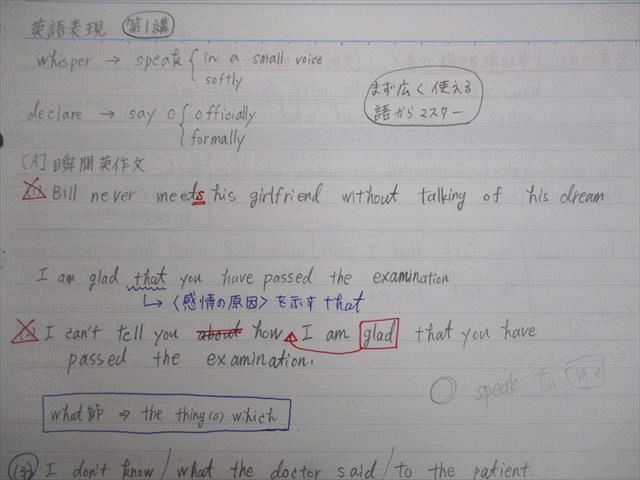 英語表現 第1講
whisper → speak { in a small voice
softly
まず広く使える
語からマスター
declare → say O { officially
formally
[A] 瞬間英作文
(1) Bill never meets his girlfriend without talking of his dream
I am glad that you have passed the examination
↳ 〈感情の原因〉を示す that
I can't tell you about how I am glad that you have
passed the examination.
speak to me
what節 ⇒ the thing(s) which
(3) I don't know / what the doctor said / to the patient.